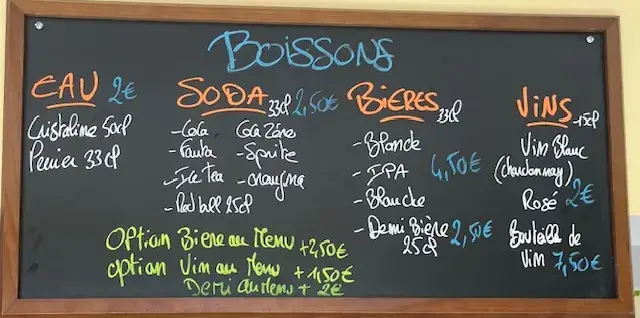 BOISSONS
EAU 2€
Cristaline 50cl
Perrier 33cl
SODA 33cl 2,50€
- Cola Coca Zéro
- Fanta - Sprite
- Ice tea - orangina
- Red bull 25cl
BIERES 33cl
- Blonde
- IPA 4,50€
- Blanche
- Demi Bière 2,50€
25cl
VINS 15cl
Vin Blanc
(chardonnay)
Rosé 2€
Bouteille de
Vin 7,50€
Option Biere au Menu +2,50€
option Vin au Menu +1,50€
Demi au Menu + 2€